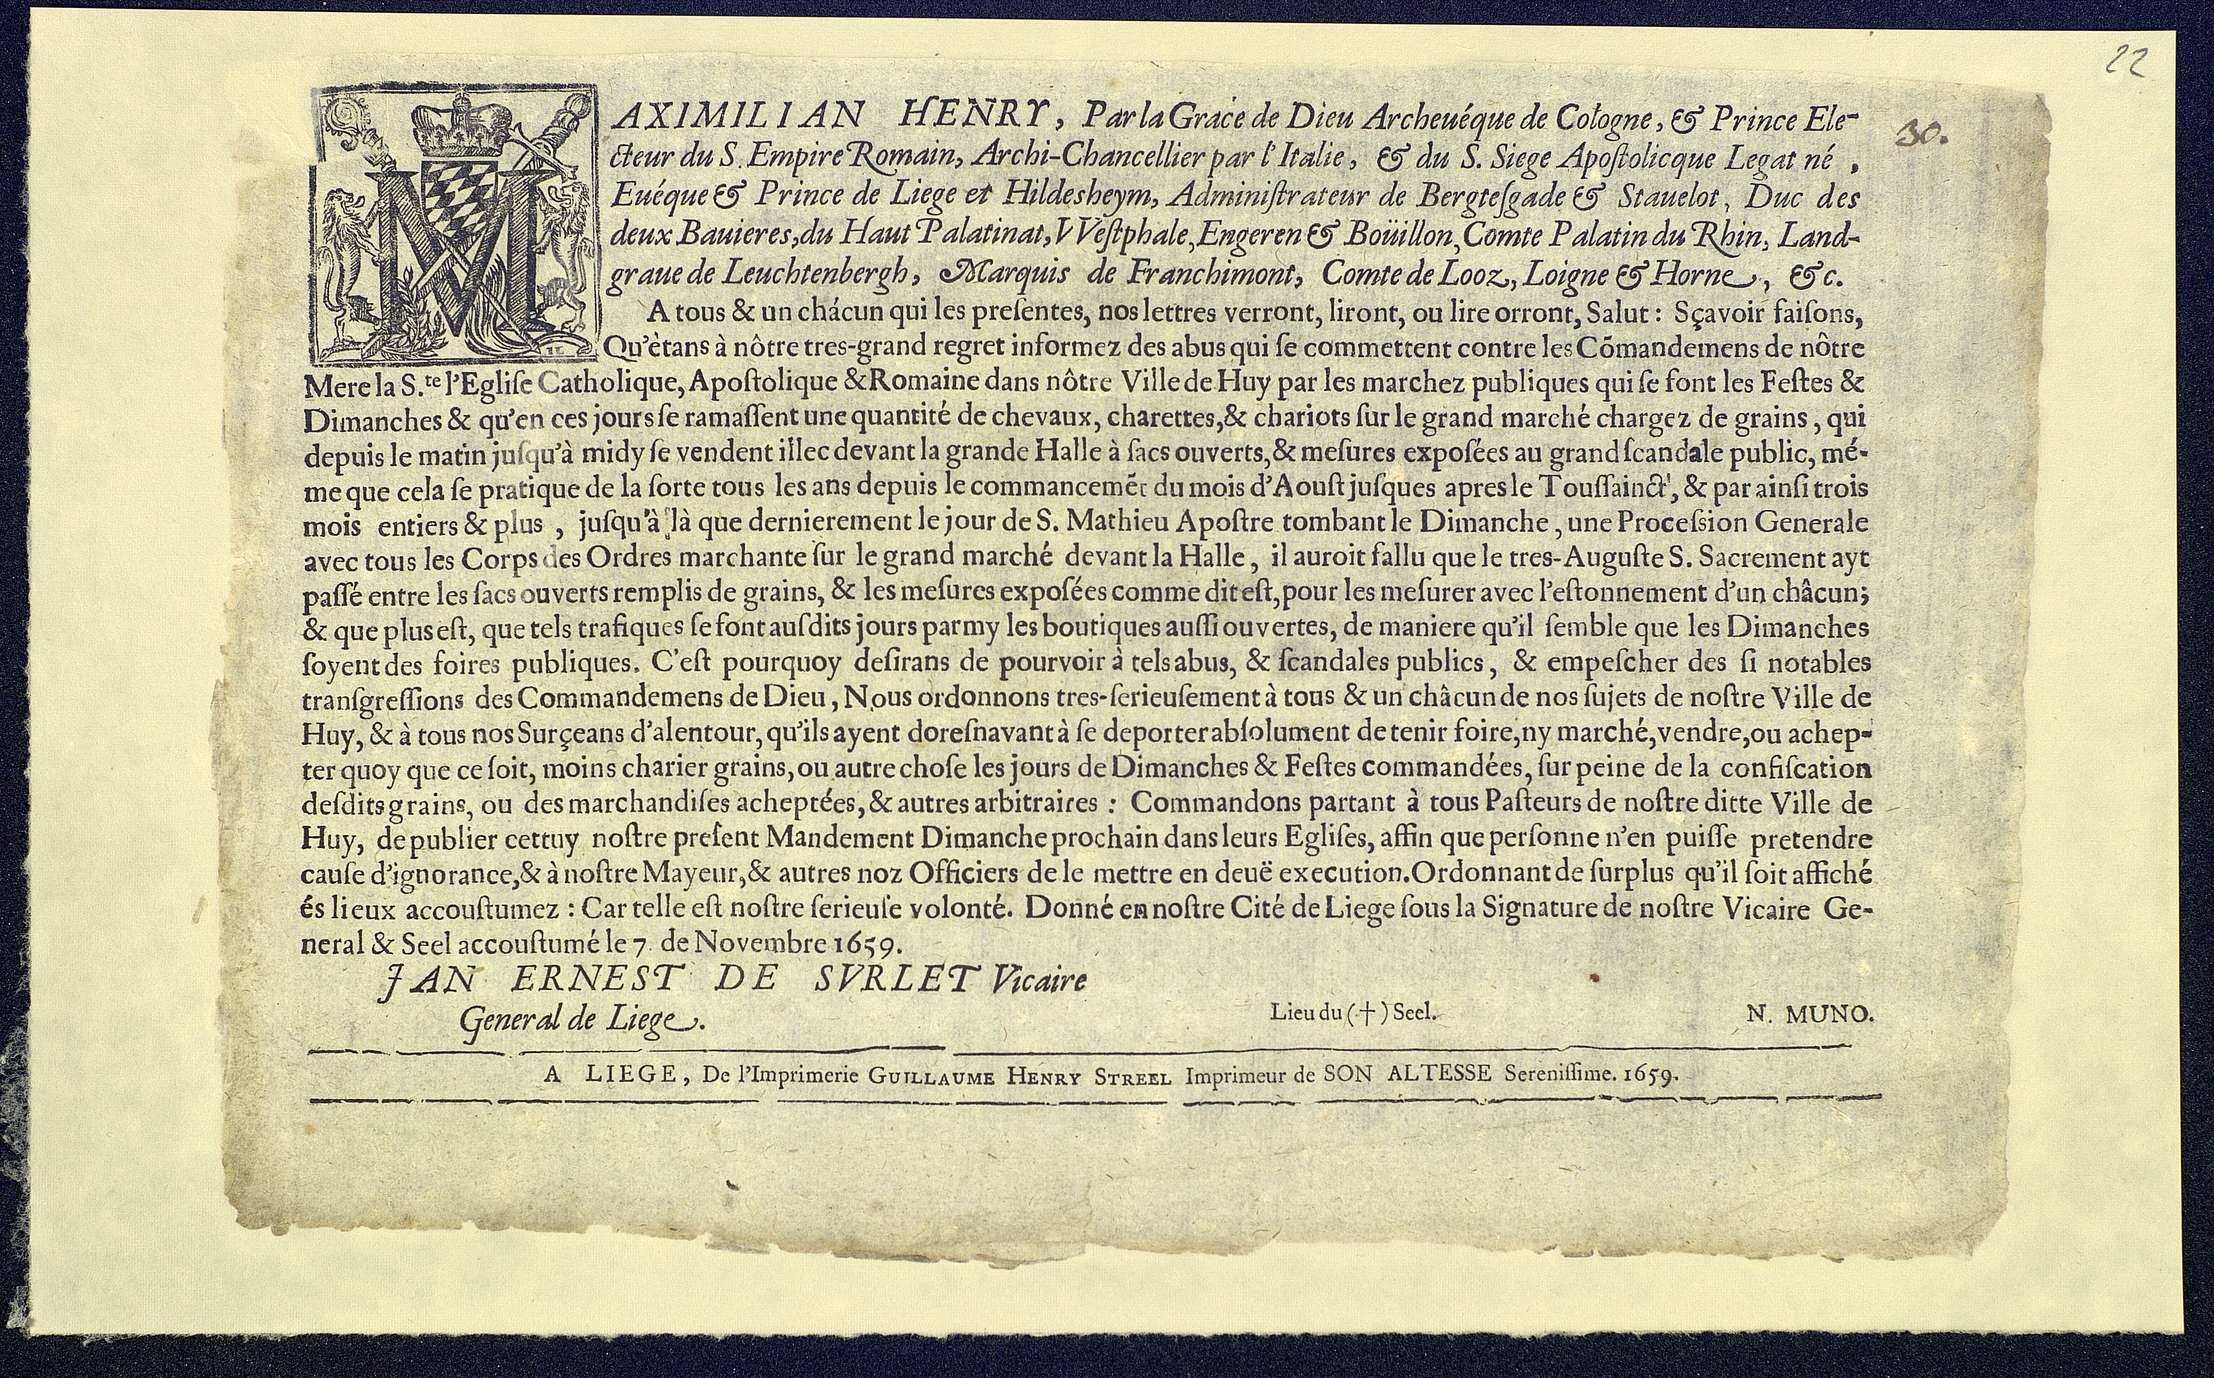 22
30.
MAXIMILIAN HENRY, Par la Grace de Dieu Archeuéque de Cologne, & Prince Ele-
cteur du S. Empire Romain, Archi-Chancellier par l'Italie, & du S. Siege Apoſtolicque Legat né,
Euéque & Prince de Liege et Hildesheym, Adminiſtrateur de Bergteſgade & Stauelot, Duc des
deux Bauieres, du Haut Palatinat, VVeſtphale, Engeren & Boüillon, Comte Palatin du Rhin, Land-
graue de Leuchtenbergh, Marquis de Franchimont, Comte de Looz, Loigne & Horne, &c.
A tous & un chácun qui les preſentes, nos lettres verront, liront, ou lire orront, Salut: Sçavoir faiſons,
Qu'ètans à nôtre tres-grand regret informez des abus qui ſe commettent contre les Cõmandemens de nôtre
Mere la S.te l'Egliſe Catholique, Apoſtolique & Romaine dans nôtre Ville de Huy par les marchez publiques qui ſe font les Feſtes &
Dimanches & qu'en ces jours ſe ramaſſent une quantité de chevaux, charettes, & chariots ſur le grand marché chargez de grains, qui
depuis le matin juſqu'à midy ſe vendent illec devant la grande Halle à ſacs ouverts, & meſures expoſées au grand ſcandale public, mé-
me que cela ſe pratique de la ſorte tous les ans depuis le commancemẽt du mois d'Aouſt juſques apres le Touſſainct, & par ainſi trois
mois entiers & plus, juſqu'à là que dernierement le jour de S. Mathieu Apoſtre tombant le Dimanche, une Proceſsion Generale
avec tous les Corps des Ordres marchante ſur le grand marché devant la Halle, il auroit fallu que le tres-Auguſte S. Sacrement ayt
paſſé entre les ſacs ouverts remplis de grains, & les meſures expoſées comme dit eſt, pour les meſurer avec l'eſtonnement d'un châcun;
& que plus eſt, que tels trafiques ſe font auſdits jours parmy les boutiques auſſi ouvertes, de maniere qu'il ſemble que les Dimanches
ſoyent des foires publiques. C'eſt pourquoy deſirans de pourvoir à tels abus, & ſcandales publics, & empeſcher des ſi notables
tranſgreſſions des Commandemens de Dieu, Nous ordonnons tres-ſerieuſement à tous & un châcun de nos ſujets de noſtre Ville de
Huy, & à tous nos Surçeans d'alentour, qu'ils ayent doreſnavant à ſe deporter abſolument de tenir foire, ny marché, vendre, ou achep-
ter quoy que ce ſoit, moins charier grains, ou autre choſe les jours de Dimanches & Feſtes commandées, ſur peine de la confiſcation
deſdits grains, ou des marchandiſes acheptées, & autres arbitraires : Commandons partant à tous Paſteurs de noſtre ditte Ville de
Huy, de publier cettuy noſtre preſent Mandement Dimanche prochain dans leurs Egliſes, affin que perſonne n'en puiſſe pretendre
cauſe d'ignorance, & à noſtre Mayeur, & autres noz Officiers de le mettre en deuë execution. Ordonnant de ſurplus qu'il ſoit affiché
és lieux accouſtumez : Car telle eſt noſtre ſerieuſe volonté. Donné en noſtre Cité de Liege ſous la Signature de noſtre Vicaire Ge-
neral & Seel accouſtumé le 7. de Novembre 1659.
JAN ERNEST DE SVRLET Vicaire
General de Liege.
Lieu du (✝) Seel.
N. MUNO.
A LIEGE, De l'Imprimerie GUILLAUME HENRY STREEL Imprimeur de SON ALTESSE Sereniſſime. 1659.